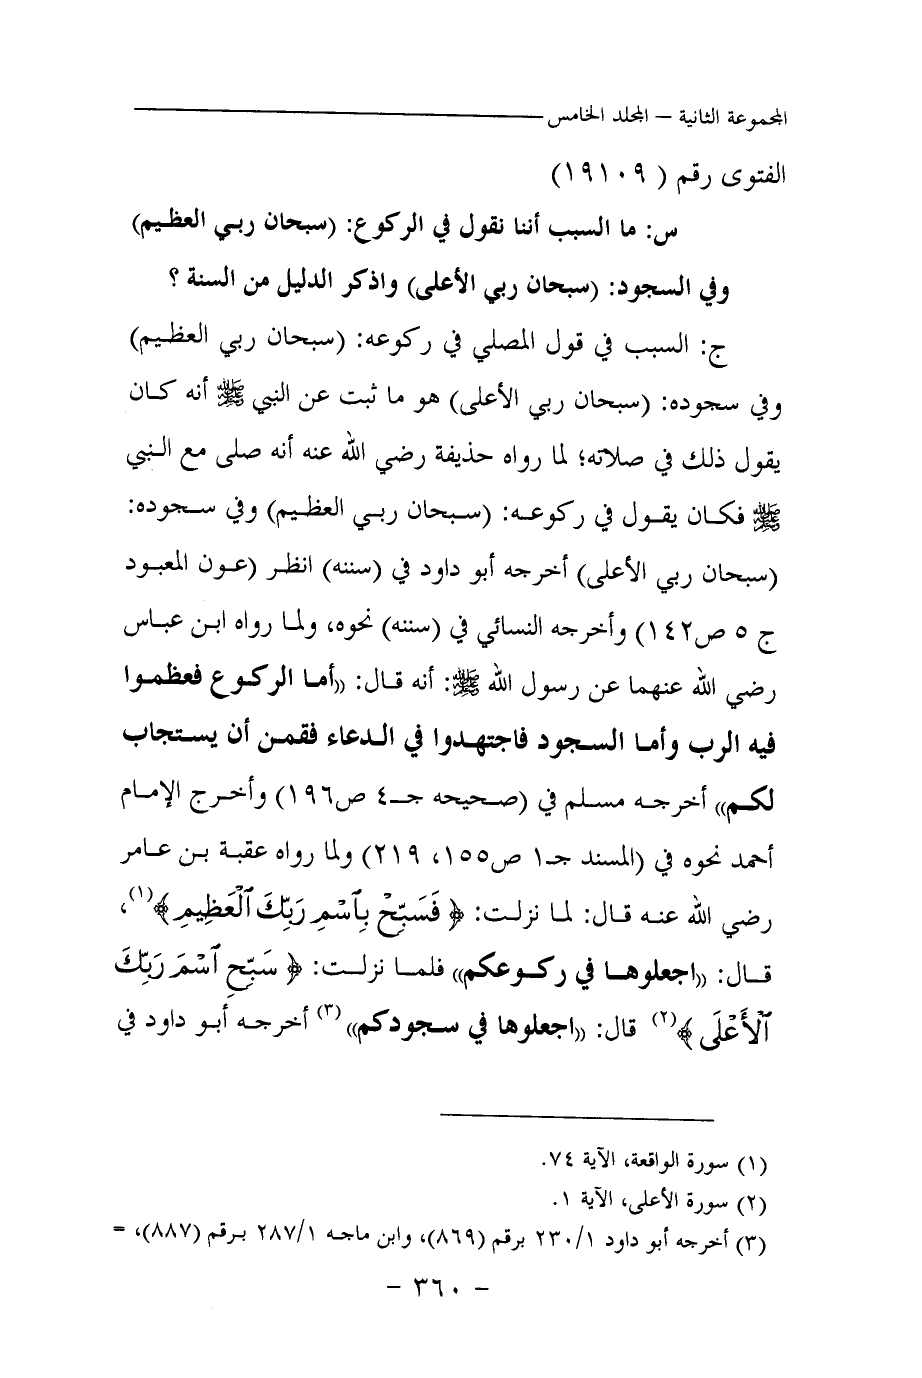 المجموعة الثانية – المجلد الخامس
الفتوى رقم ( ١٩١٠٩)
س: ما السبب أننا نقول في الركوع: (سبحان ربي العظيم)
وفي السجود: (سبحان ربي الأعلى) واذكر الدليل من السنة ؟
ج: السبب في قول المصلي في ركوعه: (سبحان ربي العظيم)
وفي سجوده: (سبحان ربي الأعلى) هو ما ثبت عن النبي ﷺ أنه كان
يقول ذلك في صلاته؛ لما رواه حذيفة رضي الله عنه أنه صلى مع النبي
ﷺ فكان يقول في ركوعه: (سبحان ربي العظيم) وفي سجوده:
(سبحان ربي الأعلى) أخرجه أبو داود في (سننه) انظر (عون المعبود
ج ٥ ص١٤٢) وأخرجه النسائي في (سننه) نحوه، ولما رواه ابن عباس
رضي الله عنهما عن رسول الله ﷺ: أنه قال: ((أما الركوع فعظموا
فيه الرب وأما السجود فاجتهدوا في الدعاء فقمن أن يستجاب
لكم)) أخرجه مسلم في (صحيحه جـ٤ ص١٩٦) وأخرج الإمام
أحمد نحوه في (المسند جـ١ ص١٥٥، ٢١٩) ولما رواه عقبة بن عامر
رضي الله عنه قال: لما نزلت: ﴿ فَسَبِّحْ بِٱسْمِ رَبِّكَ ٱلْعَظِيمِ ﴾(١)،
قال: ((اجعلوها في ركوعكم)) فلما نزلت: ﴿ سَبِّحِ ٱسْمَ رَبِّكَ
ٱلْأَعْلَى ﴾(٢) قال: ((اجعلوها في سجودكم))(٣) أخرجه أبو داود في
(١) سورة الواقعة، الآية ٧٤.
(٢) سورة الأعلى، الآية ١.
(٣) أخرجه أبو داود ٢٣٠/١ برقم (٨٦٩)، وابن ماجه ٢٨٧/١ برقم (٨٨٧)، =
- ٣٦٠ -